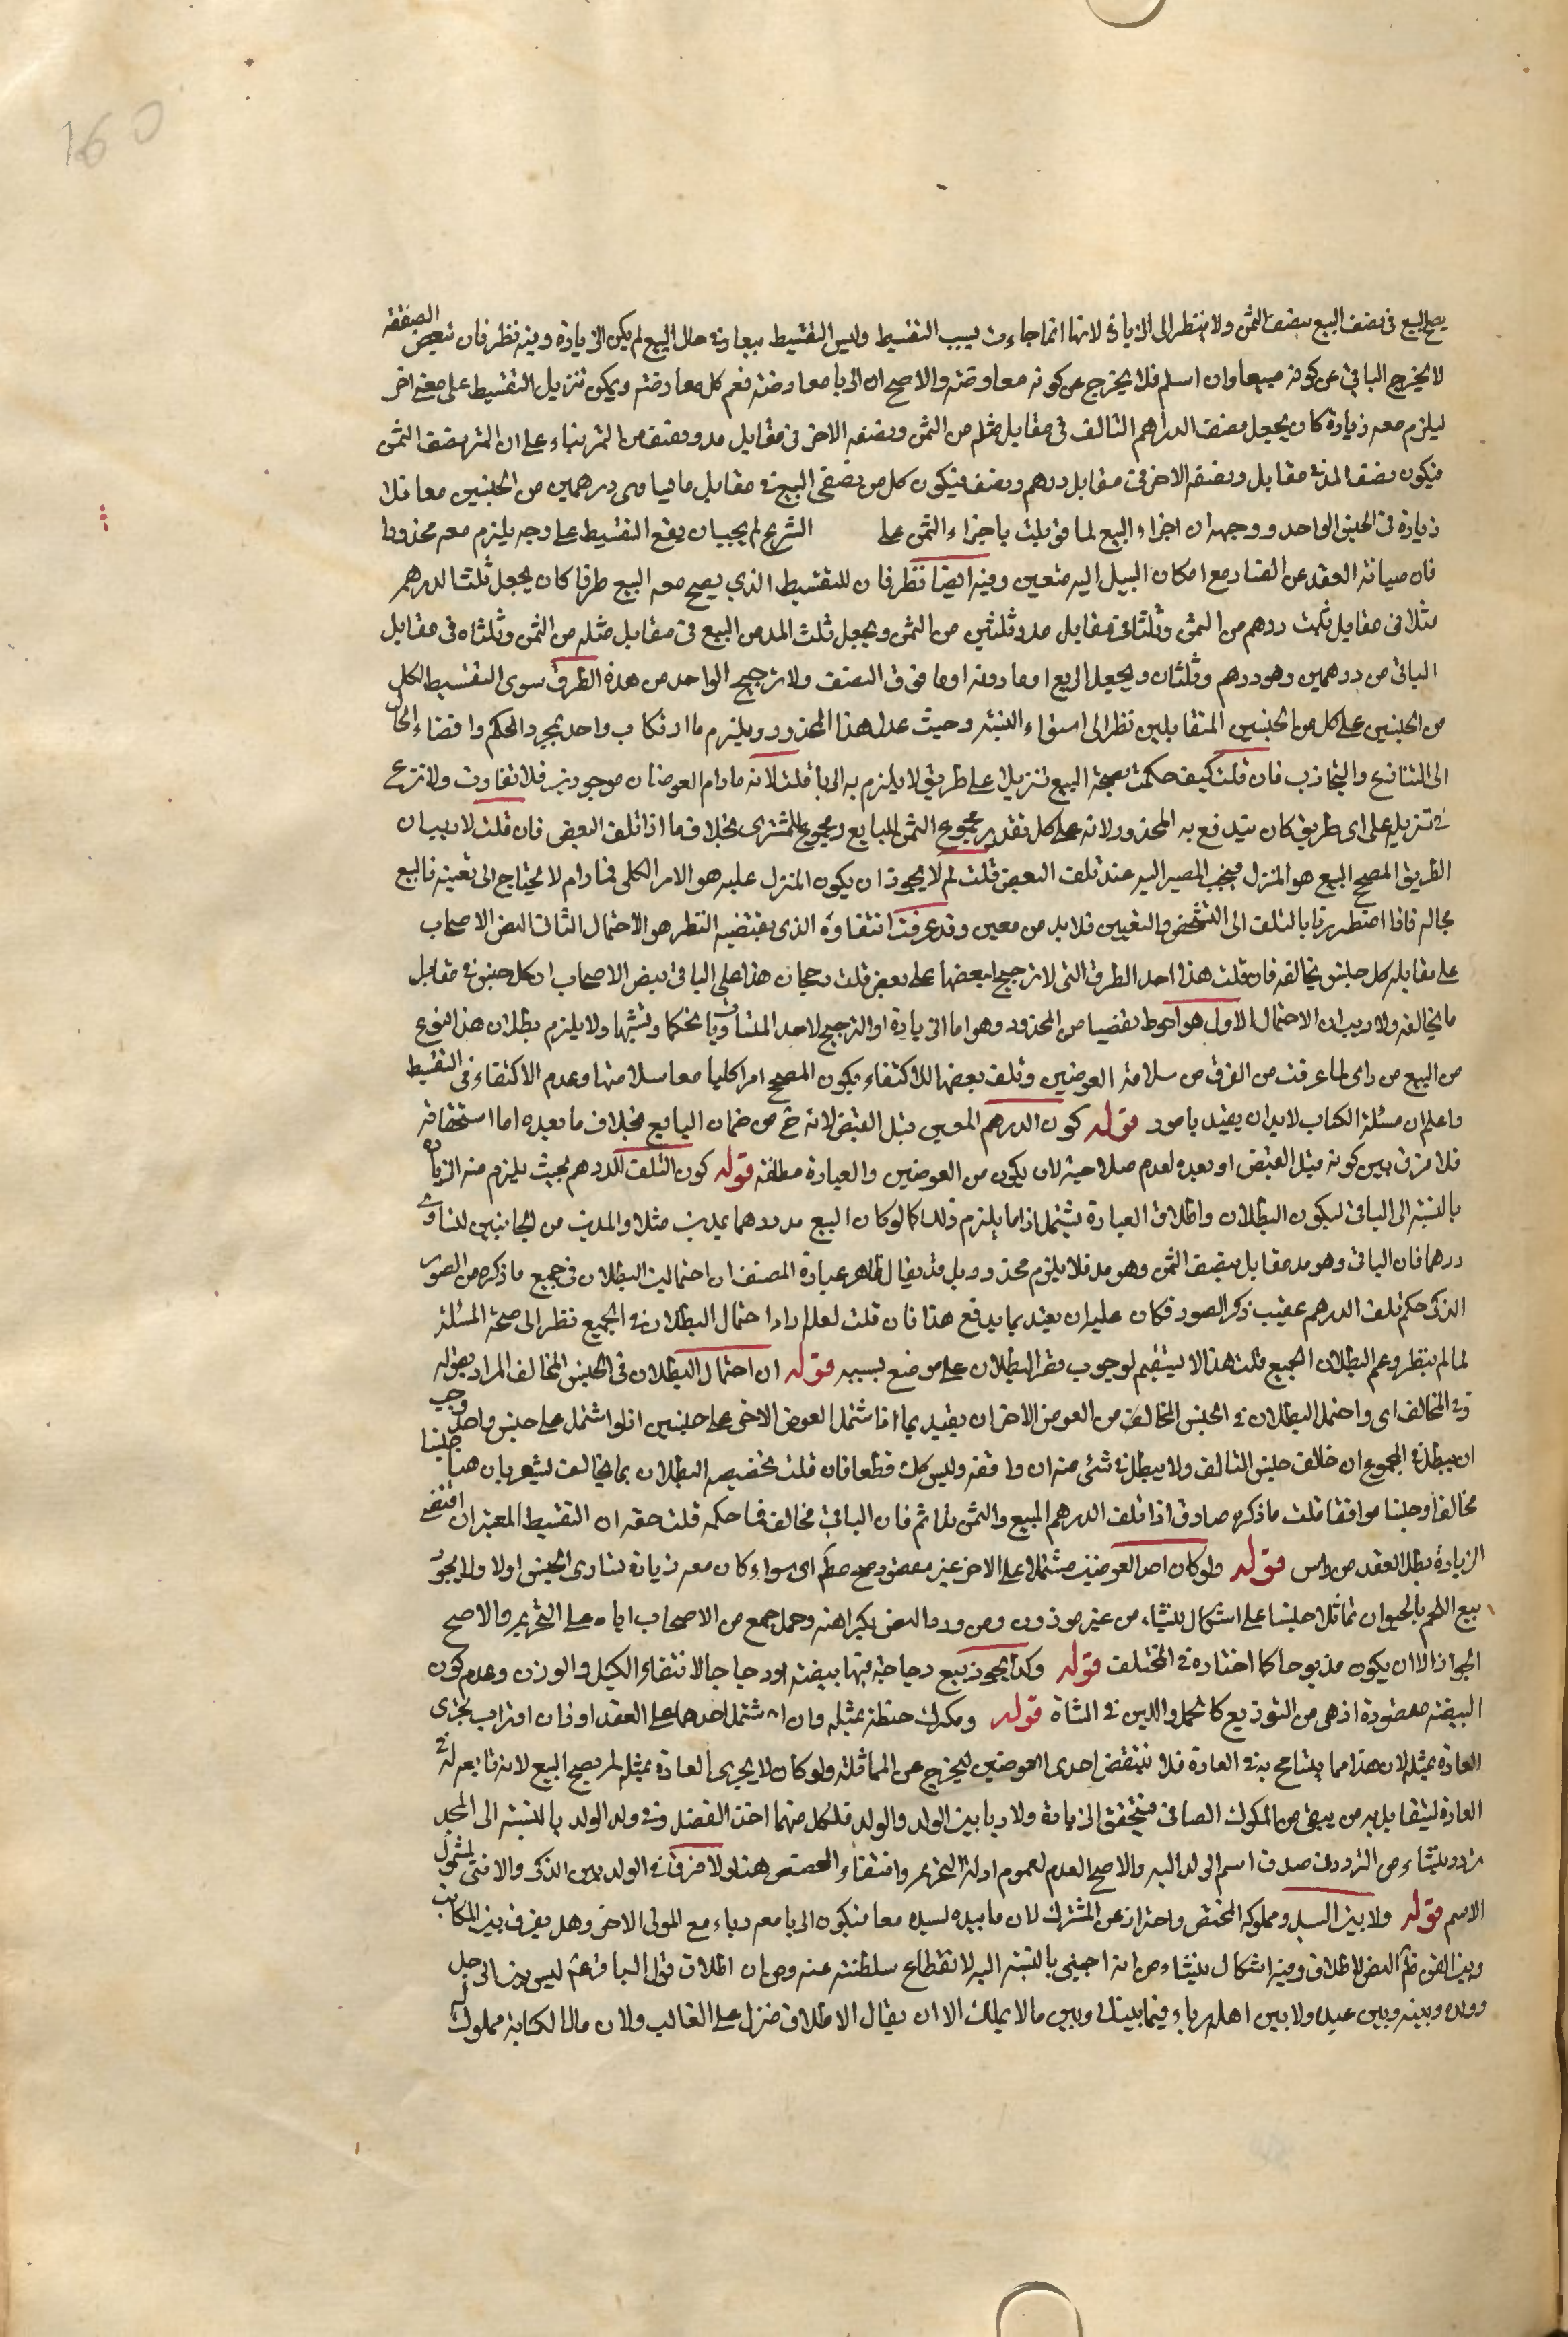 160
يصح البيع في نصف المبيع بنصف الثمن ولا ينظر الى الزيادة لانها انما جاءت بسبب التقسيط وليس التقسيط بيعا وفي حال البيع لم يكن الزيادة وفيه نظر فان تبعيض الصفقة
لا يخرج الباقي عن كونه مبيعا وان اسلم فلا يخرج عن كونه معاوضة والاصح ان الربا معاوضة فعم كل معاوضة ويمكن تنزيل التقسيط على معنى اخر
ليلزم معه زيادة كان يجعل نصف الدراهم التالف في مقابل مثله من الثمن ونصفه الاخر في مقابل مد ونصف من التمر بناء على ان التمر نصف الثمن
فيكون نصف المد في مقابل ونصفه الاخر في مقابل درهم ونصف فيكون كل من نصفي المبيع في مقابل ما يساوي درهمين من الجنسين معا فلا
زيادة في الجنس الواحد ووجهه ان اجزاء المبيع لما قوبلت باجزاء الثمن على الشرع لم يجب ان يقع التقسيط على وجه يلزم معه محذورا
فان صيانة العقد عن الفساد مع امكان السبيل اليه متعين وفيه ايضا نظر فان للتقسيط الذي يصح معه البيع طرقا كان يجعل ثلث الدرهم
مثلا في مقابل ثلث درهم من الثمن وثلثاه في مقابل مد وثلثين من الثمن ويجعل ثلث المد من المبيع في مقابل مثله من الثمن وثلثاه في مقابل
الباقي من درهمين وهو درهم وثلثان ويجعل الربع او ما دونه او ما فوق النصف ولا ترجيح الواحد من هذه الطرق سوى التقسيط الكل
من الجنسين على كل من الجنسين المتقابلين نظرا الى استواء النسبة وحيث عدل هذا المحذور ويلزم ما ارتكاب واحد بمجرد الحكم وافضاء الحال
الى التنازع والتجاذب فان قلت كيف حكمت بصحة البيع تنزيلا على طريق لا يلزم به الربا قلت لانه ما دام العوضان موجودين فلا تفاوت ولا نزع
في تنزيله على اى طريق كان يندفع به المحذور ولانه على كل تقدير مجموع الثمن للبايع ومجموع للمشترى بخلاف ما اذا تلف البعض فان قلت لا ريب ان
الطريق المصحح للبيع هو المنزل فيجب المصير اليه عند تلف البعض قلت لم لا يجوز ان يكون المنزل عليه هو الامر الكلى فما دام لا يحتاج الى تعيينه فالبيع
بحاله فاذا اضطررنا بالتلف الى التشخص والتعيين فلا بد من معين وقد عرفت انتفاؤه الذى يقتضيه النظر هو الاحتمال الثالث لنص الاصحاب
على مقابلة كل جنس بمخالفه فان قلت هذا احد الطرق التى لا ترجيح لبعضها على بعض قلت رجحان هذا على الباقي بنص الاصحاب ان كل جنس في مقابل
ما يخالفه ولا ريب ان الاحتمال الاول هو احوط تفصيا من المحذور وهو اما الزيادة او الترجيح لاحد المتساويين تحكما وتشهيا ولا يلزم بطلان هذا النوع
من البيع من راى لما عرفت من الفرق من سلامة العوضين وتلف بعضها للاكتفاء بكون المصحح امرا كليا مع سلامتها وعدم الاكتفاء في التقسيط
واعلم ان مسئلة الكتاب لا بد ان يقيد بامور قوله كون الدرهم المعين قبل القبض لانه ح من ضمان البايع بخلاف ما بعده اما استحقاقه
فلا فرق بين كونه قبل القبض او بعده لعدم صلاحيته لان يكون من العوضين والعبارة مطلقة قوله كون التلف الدرهم بحيث يلزم منه الزيادة
بالنسبة الى الباقي ليكون البطلان واطلاق العبارة يشتمل اذا ما يلزم ذلك كما لو كان المبيع مد ودرهما بمدين مثلا والمدين من الجانبين للتساوى
درهما فان الباقي وهو مد مقابل بنصف الثمن وهو مد فلا يلزم محذور بل قد يقال ظاهر عبارة المصنف ان احتمالية البطلان في جميع ما ذكره من الصور
الذكى حكم تلف الدرهم عقيب ذكر الصور فكان عليه ان يقيد بما يدفع هذا فان قلت لعله اراد احتمال البطلان في الجميع نظرا الى صحة المسئلة
لما لم ينظر وعم البطلان الجميع قلت هذا لا يستقيم لوجوب قصر البطلان على موضع بسببه قوله ان احتمال البطلان في الجنس المخالف المراد بقوله
وفي المخالف اى واحتمل البطلان في الجنس المخالف من العوض الاخر ان يقيد بما اذا اشتمل العوض الاخر على جنسين اذ لو اشتمل على جنس واحد وجب
ان يبطل في المجموع ان خالف جنس التالف ولا يبطل في شئ منه ان وافقه وليس كك قطعا فان قلت تخصيصه البطلان بما يخالف ليشعر بان هنا جنسا
مخالفا وجنسا موافقا قلت ما ذكره صادق اذا تلف الدرهم المبيع والثمن فان الباقي مخالف فما حكمه قلت حقه ان التقسيط المعتبر ان اقتضى
الزيادة بطل العقد من راس قوله ولو كان احد العوضين مشتملا على الاخر غير مقصود صح مطلقا اى سواء كان معه زيادة تساوى الجنس اولا ولا يجوز
بيع اللحم بالحيوان تماثلا جنسا على اشكال ينشاء من غير موزون ومن ورود النص بكراهته وحمل جمع من الاصحاب اياه على التحريم والاصح
الجواز الا ان يكون مذبوحا كما اختاره في المختلف قوله وكذا يجوز بيع دجاجة فيها بيضة او دجاجا لانتفاء الكيل والوزن وعدم كون
البيضة مقصودة اذ هي من التوزيع كالحمل واللبن في الشاة قوله ومكوك حنطة بمثله وان اشتمل احدهما على العقد او ذان او تراب يجرى
العادة بمثله لان هذا مما يتسامح به في العادة فلا تنتقض احدى العوضين ليخرج عن المماثلة ولو كان لا يجرى العادة بمثله لم يصح البيع لانه تابع له في
العادة ليتقابل به من يبقى من المكوك الصافي فيتحقق الزيادة ولا ربا بين الولد والوالد فلكل منهما اخذ الفضل وفي ولد الولد بالنسبة الى الجد
تردد ينشاء من التردد في صدق اسم الولد اليه والاصح العدم لعموم ادلة التحريم وانتفاء المخصص هنا ولا فرق في الولد بين الذكر والانثى لشمول
الاسم قوله ولا بين السيد ومملوكه المختص واحترز عن المشترك لان ما بيده لسيده معا فيكون الربا معه رباء مع المولى الاخر وهل يفرق بين المكاتب
وبين القن ظاهر النص الاطلاق وفيه اشكال ينشاء من انه اجنبى بالنسبة اليه لانقطاع سلطنته عنه ومن ان اطلاق قول الباقر ع ليس بين الرجل
وولده وبينه وبين عبده ولا بين اهله رباء فيما بينك وبين ما لا يملك الا ان يقال الاطلاق منزل على الغالب ولان مال الكتابة مملوك